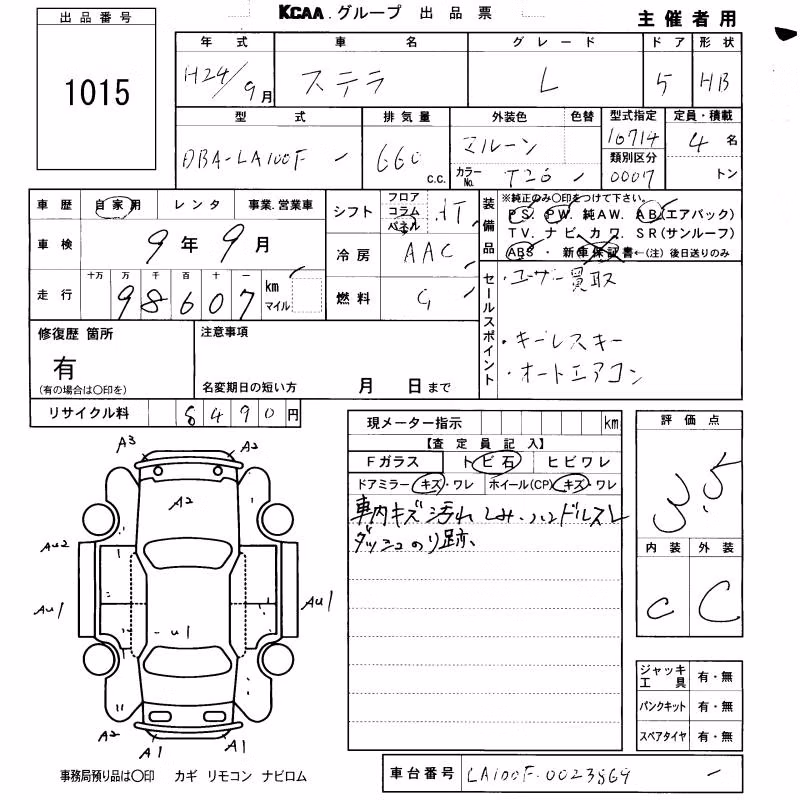 出品番号
1015
KCAA.グループ 出品票
主催者用
年式 車名 グレード ドア 形状
H24/9月 ステラ L 5 HB
型式 排気量 外装色 色替 型式指定 定員・積載
DBA-LA100F 660 c.c. マルーン 16714 4名
カラーNo. T26 類別区分 0007 トン
車歴 自家用 レンタ 事業.営業車
シフト フロア コラム パネル AT
装備品 ※純正のみ〇印をつけて下さい。
PS. PW. 純AW. AB(エアバック)
TV. ナビ. カワ. SR(サンルーフ)
ABS ・ 新車保証書←(注) 後日送りのみ
車検 9年9月
冷房 AAC
走行 十万 万 千 百 十 一
98607 km マイル
燃料 G
セールスポイント
・ユーザー買取
・キーレスキー
・オートエアコン
修復歴 箇所
有
(有の場合は〇印を)
注意事項
名変期日の短い方 月 日まで
リサイクル料 8490円
現メーター指示 km
【査定員記入】
Fガラス トビ石 ヒビワレ
ドアミラー キズ・ワレ ホイール(CP) キズ・ワレ
車内キズ汚れ シミ.ハンドルスレ
ダッシュのり跡、
評価点
3.5
内装 外装
C C
A3 A2
A2
AU2
AU1 AU1
U1
A2 A1 A1
ジャッキ工具 有・無
パンクキット 有・無
スペアタイヤ 有・無
事務局預り品は〇印 カギ リモコン ナビロム
車台番号 LA100F-0023869